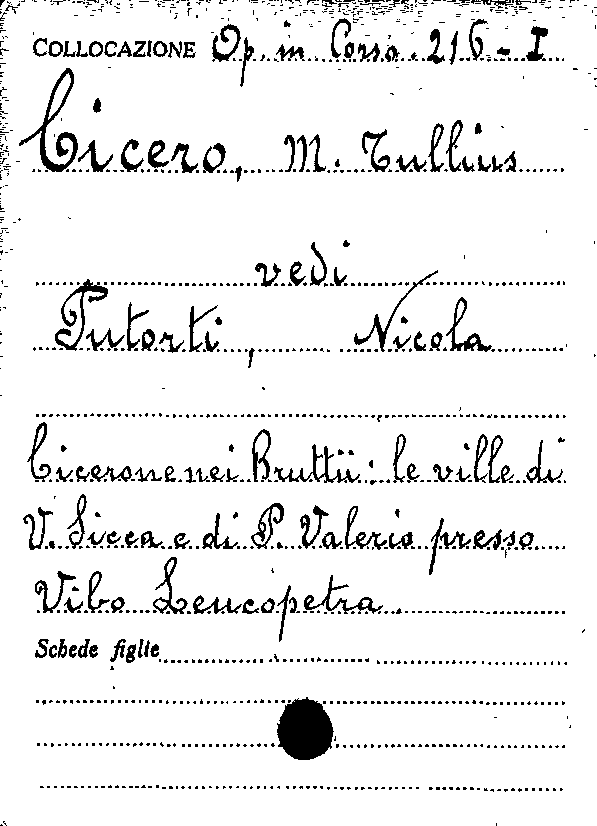 COLLOCAZIONE Op. in Corso. 216 - I
Cicero, M. Tullius
vedi
Putorti, Nicola
Cicerone nei Bruttii: le ville di
V. Sicca e di P. Valerio presso
Vibo Leucopetra.
Schede figlie